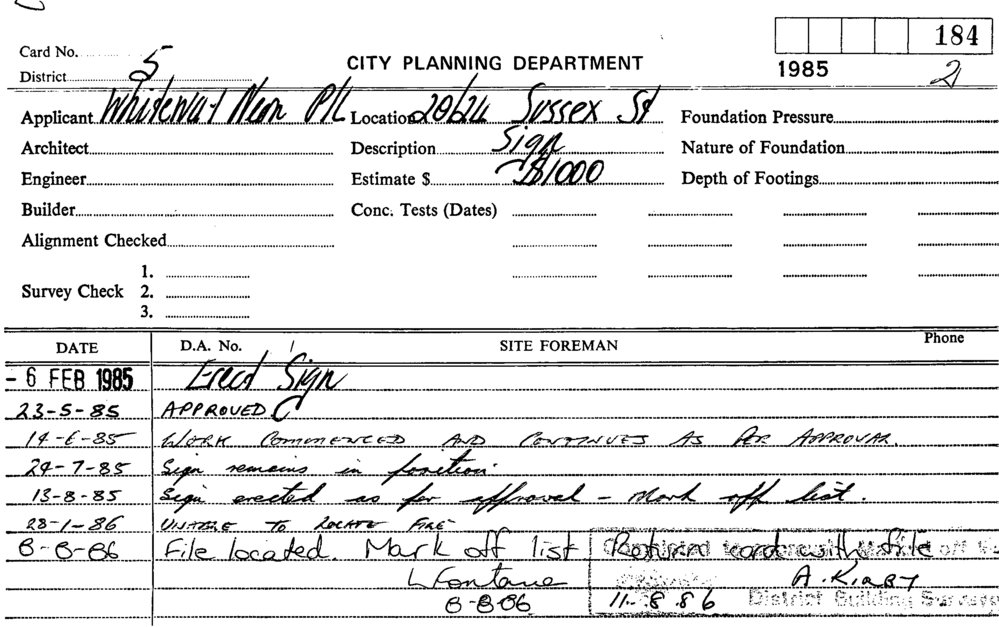 Card No. 5
184
District
CITY PLANNING DEPARTMENT
1985
2
Applicant Whiteway Neon P/L Location 20/24 Sussex St Foundation Pressure
Architect Description Sign Nature of Foundation
Engineer Estimate $ $1000 Depth of Footings
Builder Conc. Tests (Dates)
Alignment Checked
1.
Survey Check 2.
3.
DATE D.A. No. SITE FOREMAN Phone
- 6 FEB 1985 Erect Sign
23-5-85 APPROVED C
14-6-85 WORK COMMENCED AND CONTINUES AS PER APPROVAL.
24-7-85 Sign remains in position.
13-8-85 Sign erected as per approval - Mark off list.
28-1-86 UNABLE TO LOCATE FILE
8-8-86 File located Mark off list Returned card with file
L Fontane A. Kirby
8-8-86 11. 8. 86 District Building Surveyor